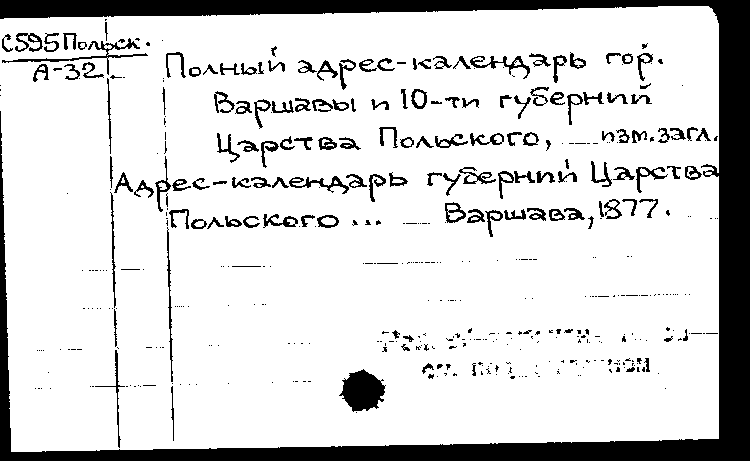 С595Польск.
А-32.
Полный адрес-календарь гор.
Варшавы и 10-ти губерний
Царства Польского, изм.загл.
Адрес-календарь губерний Царства
Польского ... Варшава, 1877.
см. под